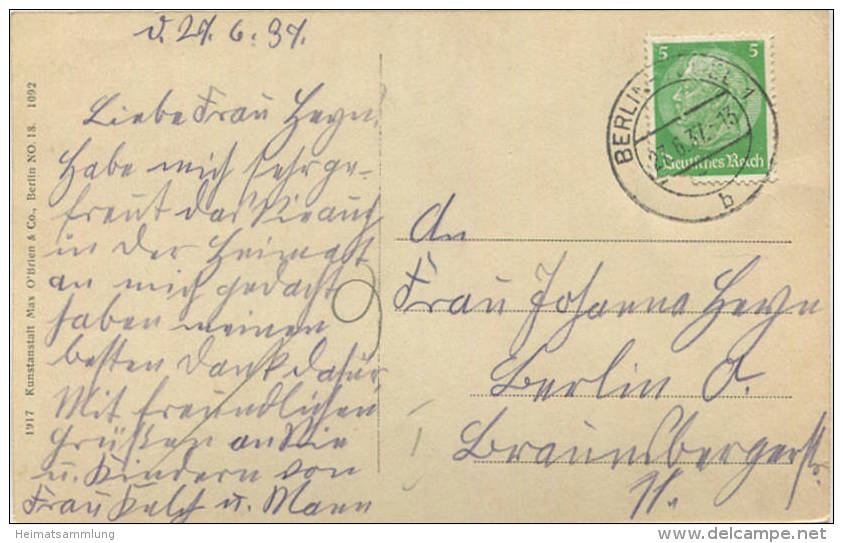 d. 27. 6. 37.
Liebe Frau Heyn.
Habe mich sehr ge-
freut das Sie auch
in der Heimat
an mich gedacht
haben meinen
besten Dank dafür,
Mit freundlichen
Grüßen an Sie
u. Kindern von
Frau u. Mann
1917 Kunstanstalt Max O'Brien & Co., Berlin NO. 18. 1092
5 5
Deutsches Reich
BERLIN 1
27.6.37.-13
b
An
Frau Johanna Heyn
Berlin O.
Braunsbergerstr.
11.
Heimatsammlung
www.delcampe.net